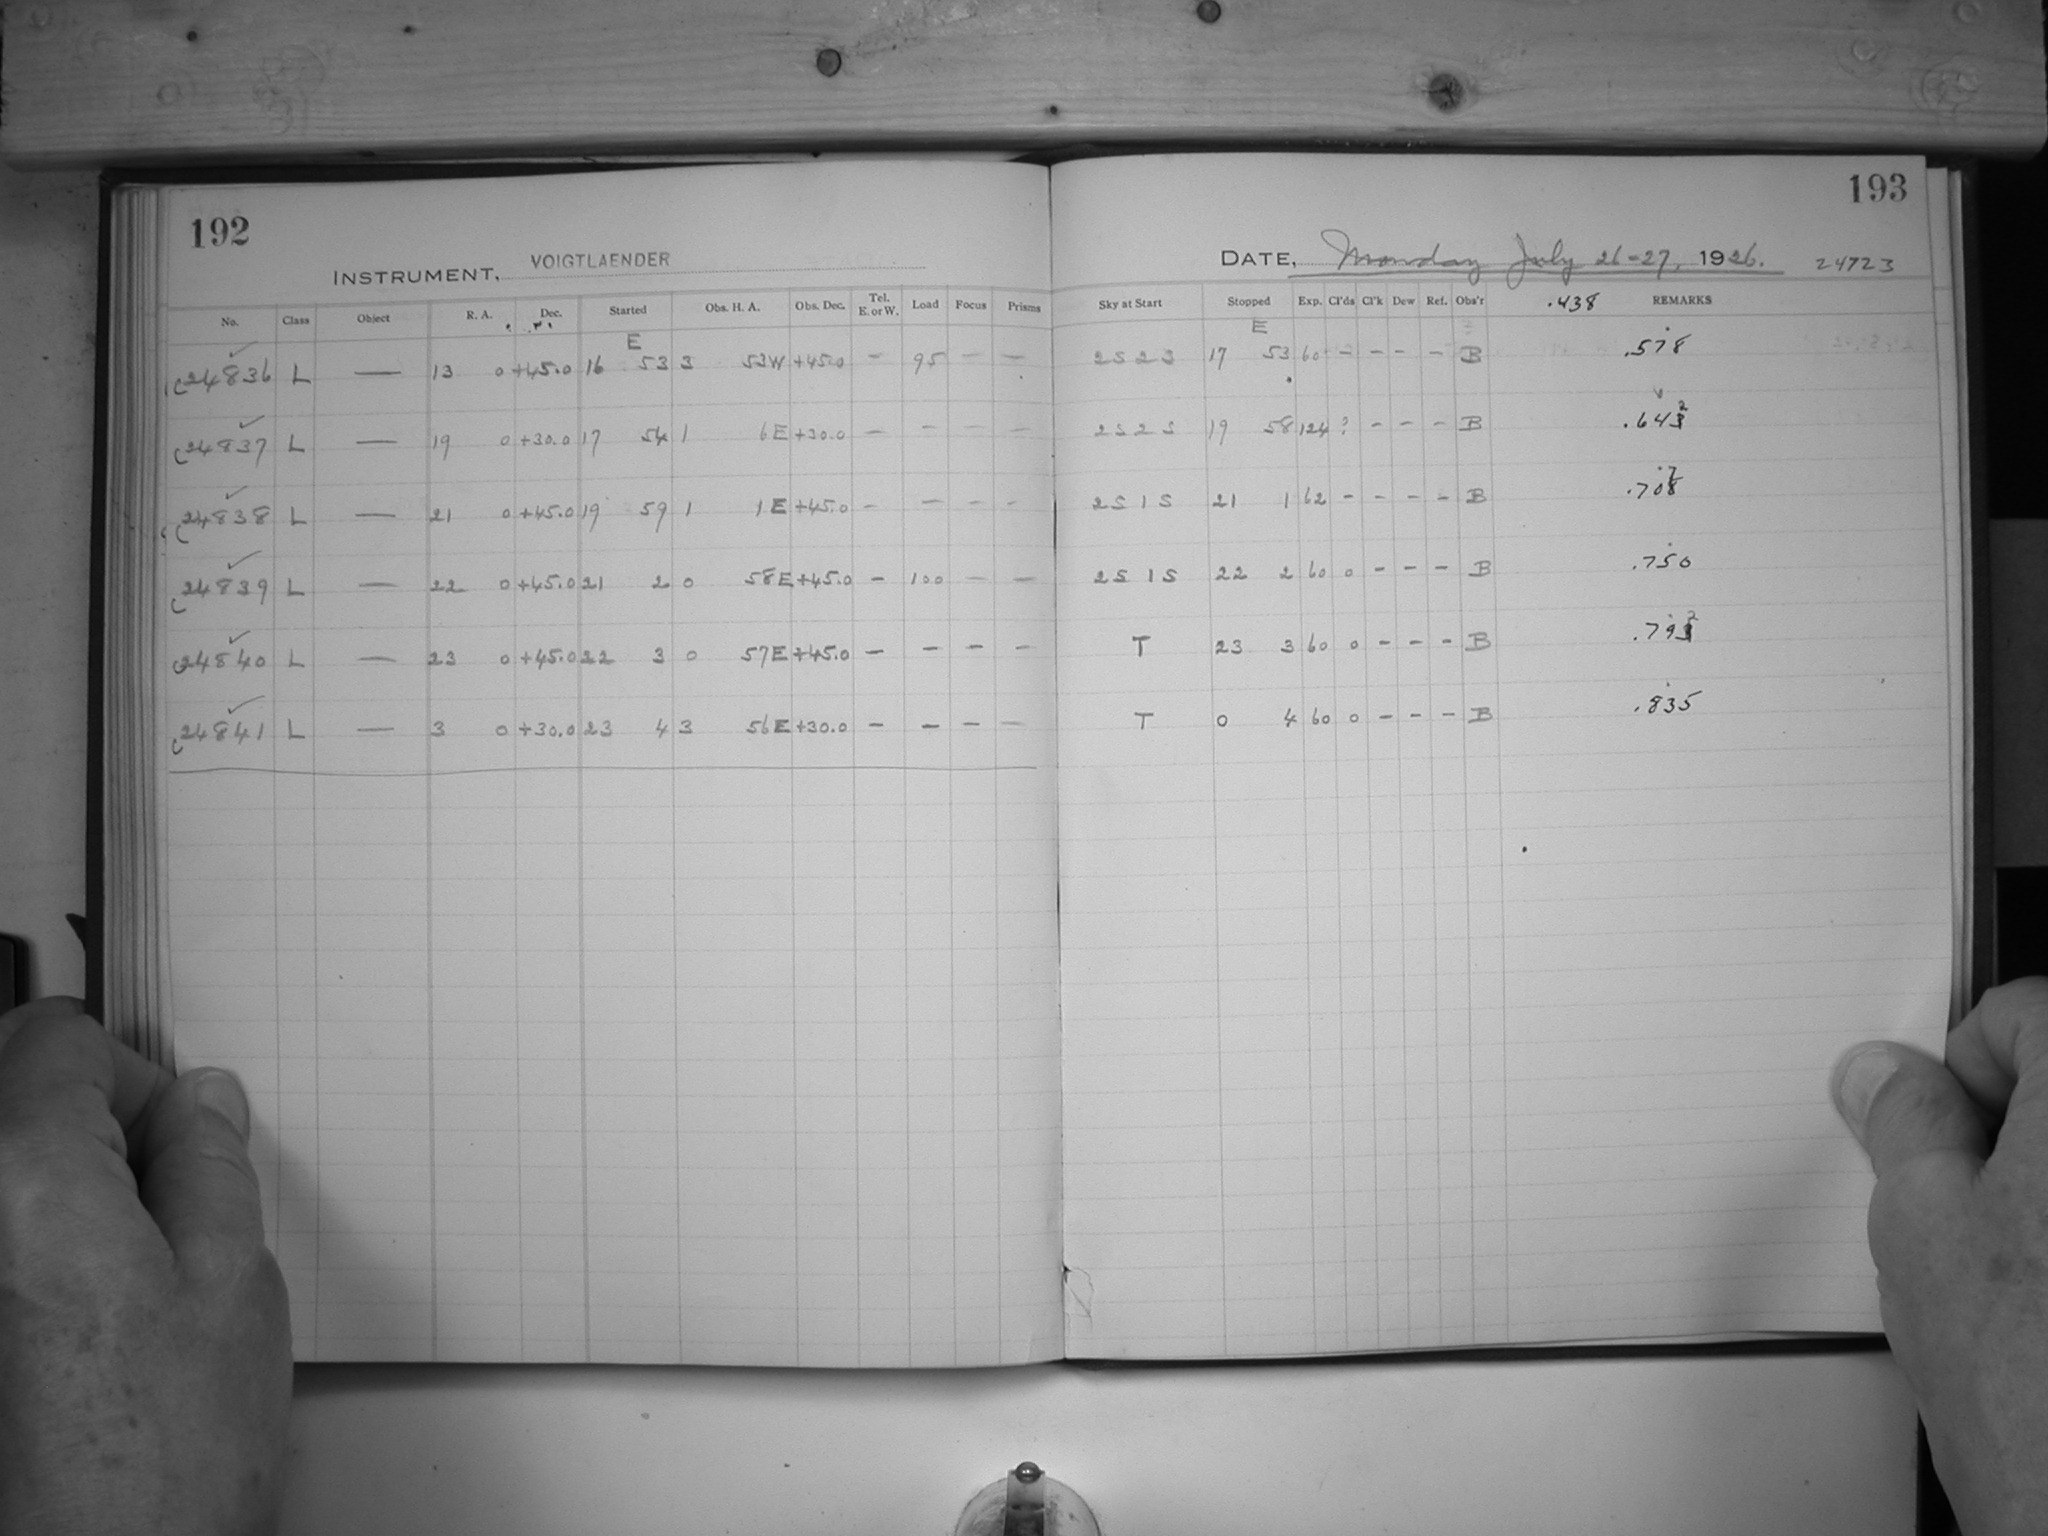 192
INSTRUMENT, VOIGTLAENDER
No. Class Object R. A. Dec. Started Obs. H. A. Obs. Dec. Tel. E. or W. Load Focus Prisms
E
24836 L — 13 0 +45.0 16 53 3 53W +45.0 — 95 — —
24837 L — 19 0 +30.0 17 54 1 6E +30.0 — — — —
24838 L — 21 0 +45.0 19 59 1 1E +45.0 — — — —
24839 L — 22 0 +45.0 21 2 0 58E +45.0 — 100 — —
24840 L — 23 0 +45.0 22 3 0 57E +45.0 — — — —
24841 L — 3 0 +30.0 23 4 3 56E +30.0 — — — —
193
DATE, Monday July 26-27, 1926. 24723
Sky at Start Stopped Exp. Cl'ds Cl'k Dew Ref. Obs'r .438 REMARKS
E
2S 2S 17 53 60 — — — — B .578
2S 2S 19 58 124 ? — — — B .643 2
2S 1S 21 1 62 — — — — B .708 7
2S 1S 22 2 60 0 — — — B .750
T 23 3 60 0 — — — B .793 2
T 0 4 60 0 — — — B .835